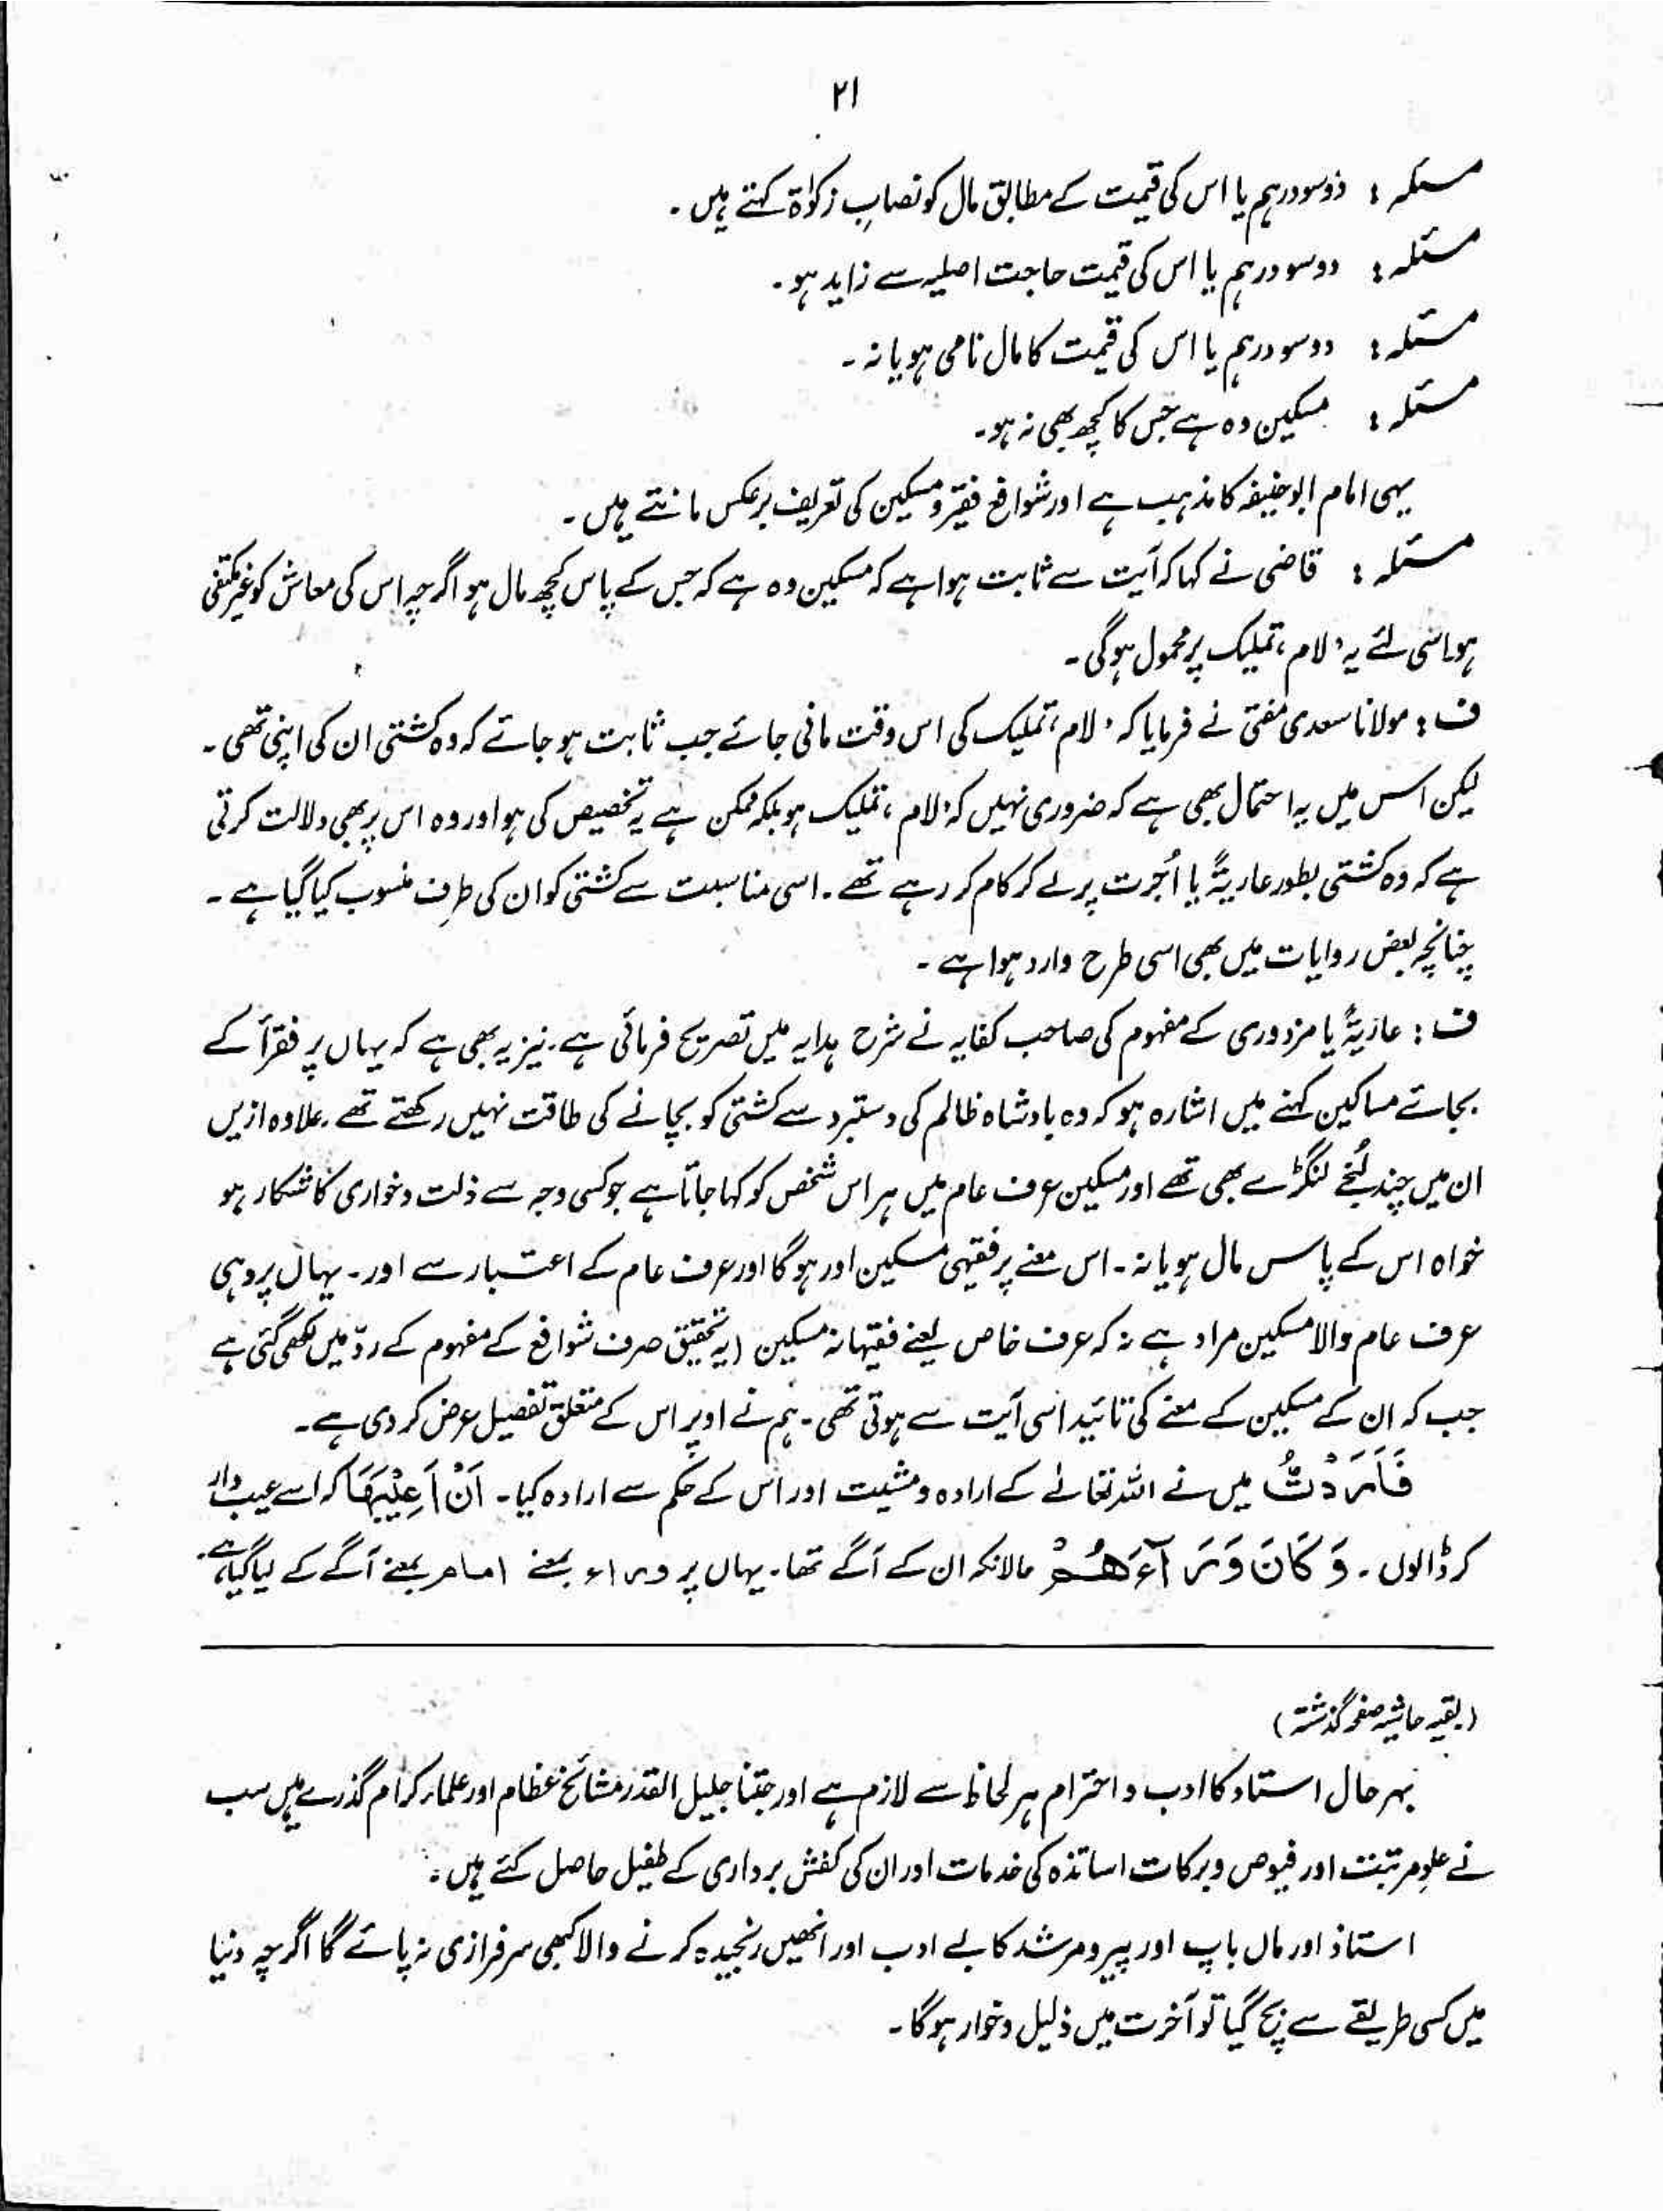 ۲۱
مسئلہ : دوسو درہم یا اس کی قیمت کے مطابق مال کو نصابِ زکوٰۃ کہتے ہیں ۔
مسئلہ : دوسو درہم یا اس کی قیمت حاجت اصلیہ سے زاید ہو ۔
مسئلہ : دوسو درہم یا اس کی قیمت کا مال نامی ہو یا نہ ۔
مسئلہ : مسکین وہ ہے جس کا کچھ بھی نہ ہو۔
یہی امام ابوحنیفہ کا مذہب ہے اور شوافع فقیر و مسکین کی تعریف برعکس مانتے ہیں ۔
مسئلہ : قاضی نے کہا کہ آیت سے ثابت ہوا ہے کہ مسکین وہ ہے کہ جس کے پاس کچھ مال ہو اگرچہ اس کی معاش کو غیر مکتفی
ہو اسی لئے یہ ’لام‘ تملیک پر محمول ہوگی ۔
ف : مولانا سعدی مفتی نے فرمایا کہ ’لام‘ تملیک کی اس وقت مانی جائے جب ثابت ہو جائے کہ وہ کشتی ان کی اپنی تھی ۔
لیکن اس میں یہ احتمال بھی ہے کہ ضروری نہیں کہ ’لام‘ تملیک ہو بلکہ ممکن ہے یہ تخصیص کی ہو اور وہ اس پر بھی دلالت کرتی
ہے کہ وہ کشتی بطور عاریۃً یا اُجرت پر لے کر کام کر رہے تھے ۔ اسی مناسبت سے کشتی کو ان کی طرف منسوب کیا گیا ہے ۔
چنانچہ بعض روایات میں بھی اسی طرح وارد ہوا ہے ۔
ف : عاریۃً یا مزدوری کے مفہوم کی صاحب کفایہ نے شرح ہدایہ میں تصریح فرمائی ہے ۔ نیز یہ بھی ہے کہ یہاں پر فقرأ کے
بجائے مساکین کہنے میں اشارہ ہو کہ وہ بادشاہ ظالم کی دستبرد سے کشتی کو بچانے کی طاقت نہیں رکھتے تھے ۔ علاوہ ازیں
ان میں چند لُنجے لنگڑے بھی تھے اور مسکین عرف عام میں ہر اس شخص کو کہا جاتا ہے جو کسی وجہ سے ذلت و خواری کا شکار ہو
خواہ اس کے پاس مال ہو یا نہ ۔ اس معنے پر فقیہی مسکین اور ہوگا اور عرف عام کے اعتبار سے اور ۔ یہاں پر وہی
عرف عام والا مسکین مراد ہے نہ کہ عرف خاص یعنے فقیہانہ مسکین (یہ تحقیق صرف شوافع کے مفہوم کے ردّ میں لکھی گئی ہے
جب کہ ان کے مسکین کے معنے کی تائید اسی آیت سے ہوتی تھی ۔ ہم نے اوپر اس کے متعلق تفصیل عرض کر دی ہے ۔
فَاَرَدْتُّ میں نے اللہ تعالےٰ کے ارادہ و مشیت اور اس کے حکم سے ارادہ کیا ۔ اَنْ اَعِیْبَھَا کہ اسے عیب دار
کر ڈالوں ۔ وَ کَانَ وَرَآءَھُمْ حالانکہ ان کے آگے تھا ۔ یہاں پر وراء بمعنے امام بمعنے آگے کے لیا گیا ہے
(بقیہ حاشیہ صفحہ گذشتہ)
بہر حال استاد کا ادب و احترام ہر لحاظ سے لازم ہے اور جتنا جلیل القدر مشائخ عظام اور علماء کرام گذرے ہیں سب
نے علوِ مرتبت اور فیوض و برکات اساتذہ کی خدمات اور ان کی کفش برداری کے طفیل حاصل کئے ہیں ۔
استاذ اور ماں باپ اور پیر و مرشد کا بے ادب اور انھیں رنجیدہ کرنے والا کبھی سرفرازی نہ پائے گا اگرچہ دنیا
میں کسی طریقے سے بچ گیا تو آخرت میں ذلیل و خوار ہوگا ۔